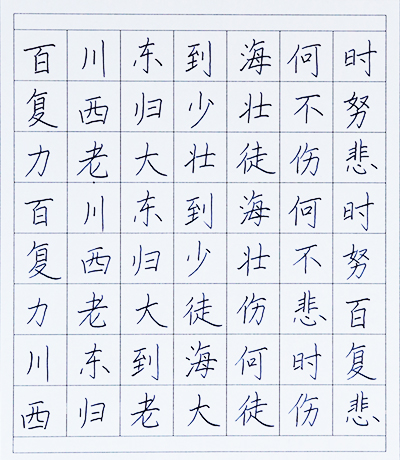 百川东到海何时
复西归少壮不努
力老大壮徒伤悲
百川东到海何时
复西归少壮不努
力老大徒伤悲百
川东到海何时复
西归老大徒伤悲